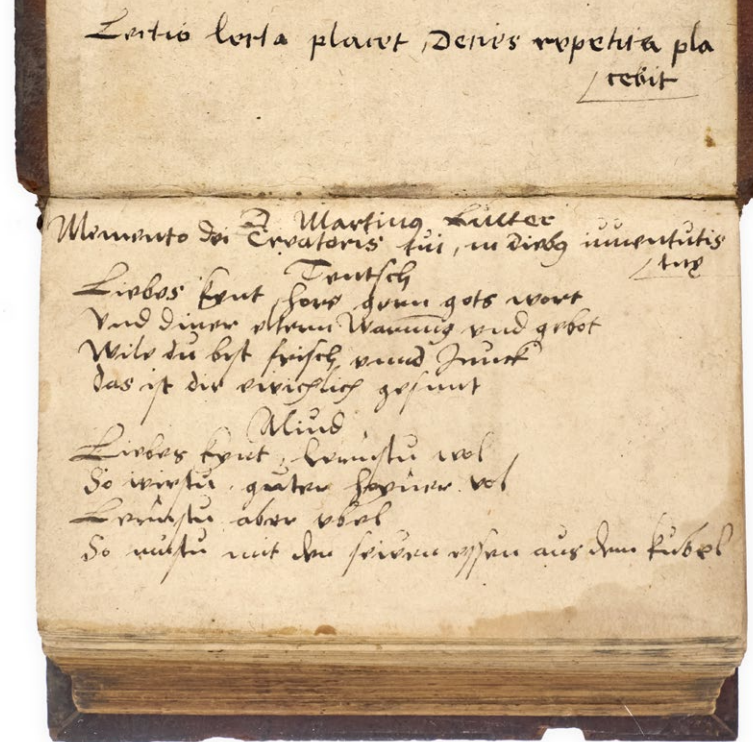 Lectio lecta placet, Decies repetita pla
cebit
D Martinus Lutter
Memento dei Creatoris tui, in dieb9 iuuentutis
tuę
Teutsch
Liebes kynt, hore gern gots wort
Vnd diner eltern Warnung vnd gebot
Wile du bist frisch vnnd Junck
das ist dir ewichlich gesunt
Aliud
Liebes kynt, lernustu wol
So wirstu guter hoyner vol
Lernustu aber vbel
So mustu mit den sewen essen aus dem kubel